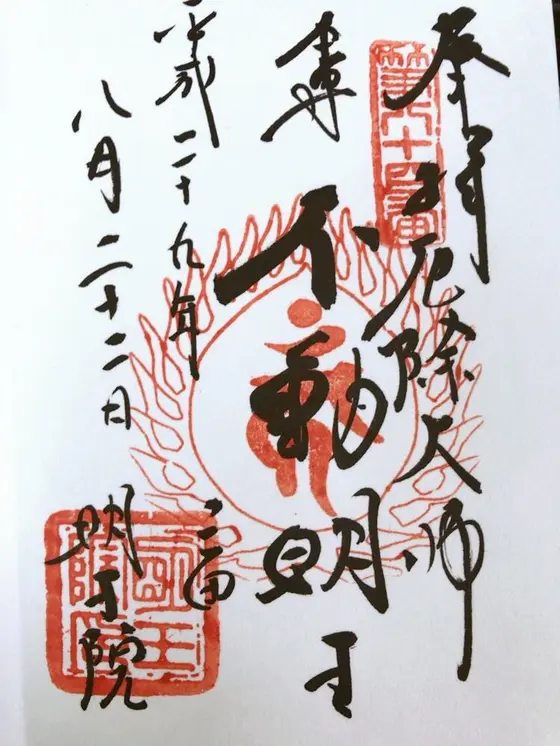 奉拝
厄除大師
第八十四番
不動明王
平成二十九年
八月二十二日
三田
明王院